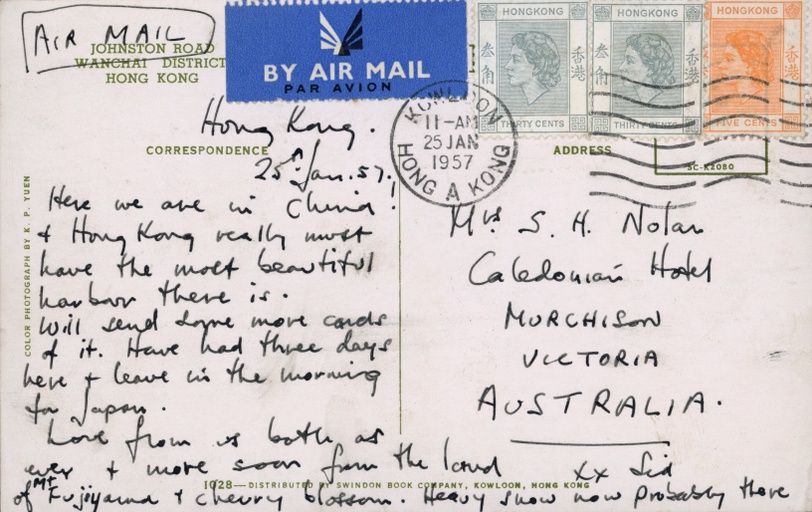 AIR MAIL
JOHNSTON ROAD
WANCHAI DISTRICT
HONG KONG
BY AIR MAIL
PAR AVION
HONGKONG
叁角
香港
THIRTY CENTS
HONGKONG
叁角
香港
THIRTY CENTS
HONGKONG
香港
FIVE CENTS
KOWLOON
11-AM
25 JAN
1957
HONG KONG
A
CORRESPONDENCE
ADDRESS
SC-K2080
COLOR PHOTOGRAPH BY K. P. YUEN
Hong Kong.
25th Jan. 57.
Here we are in China!
& Hong Kong really must
have the most beautiful
harbour there is.
Will send some more cards
of it. Have had three days
here & leave in the morning
for Japan.
Love from us both as
ever & more soon from the land
of Mt Fujiyama & cherry blossom. Heavy snow now probably there
xx Sid
Mrs S. H. Nolan
Caledonian Hotel
MURCHISON
VICTORIA
AUSTRALIA.
1028—DISTRIBUTED BY SWINDON BOOK COMPANY, KOWLOON, HONG KONG